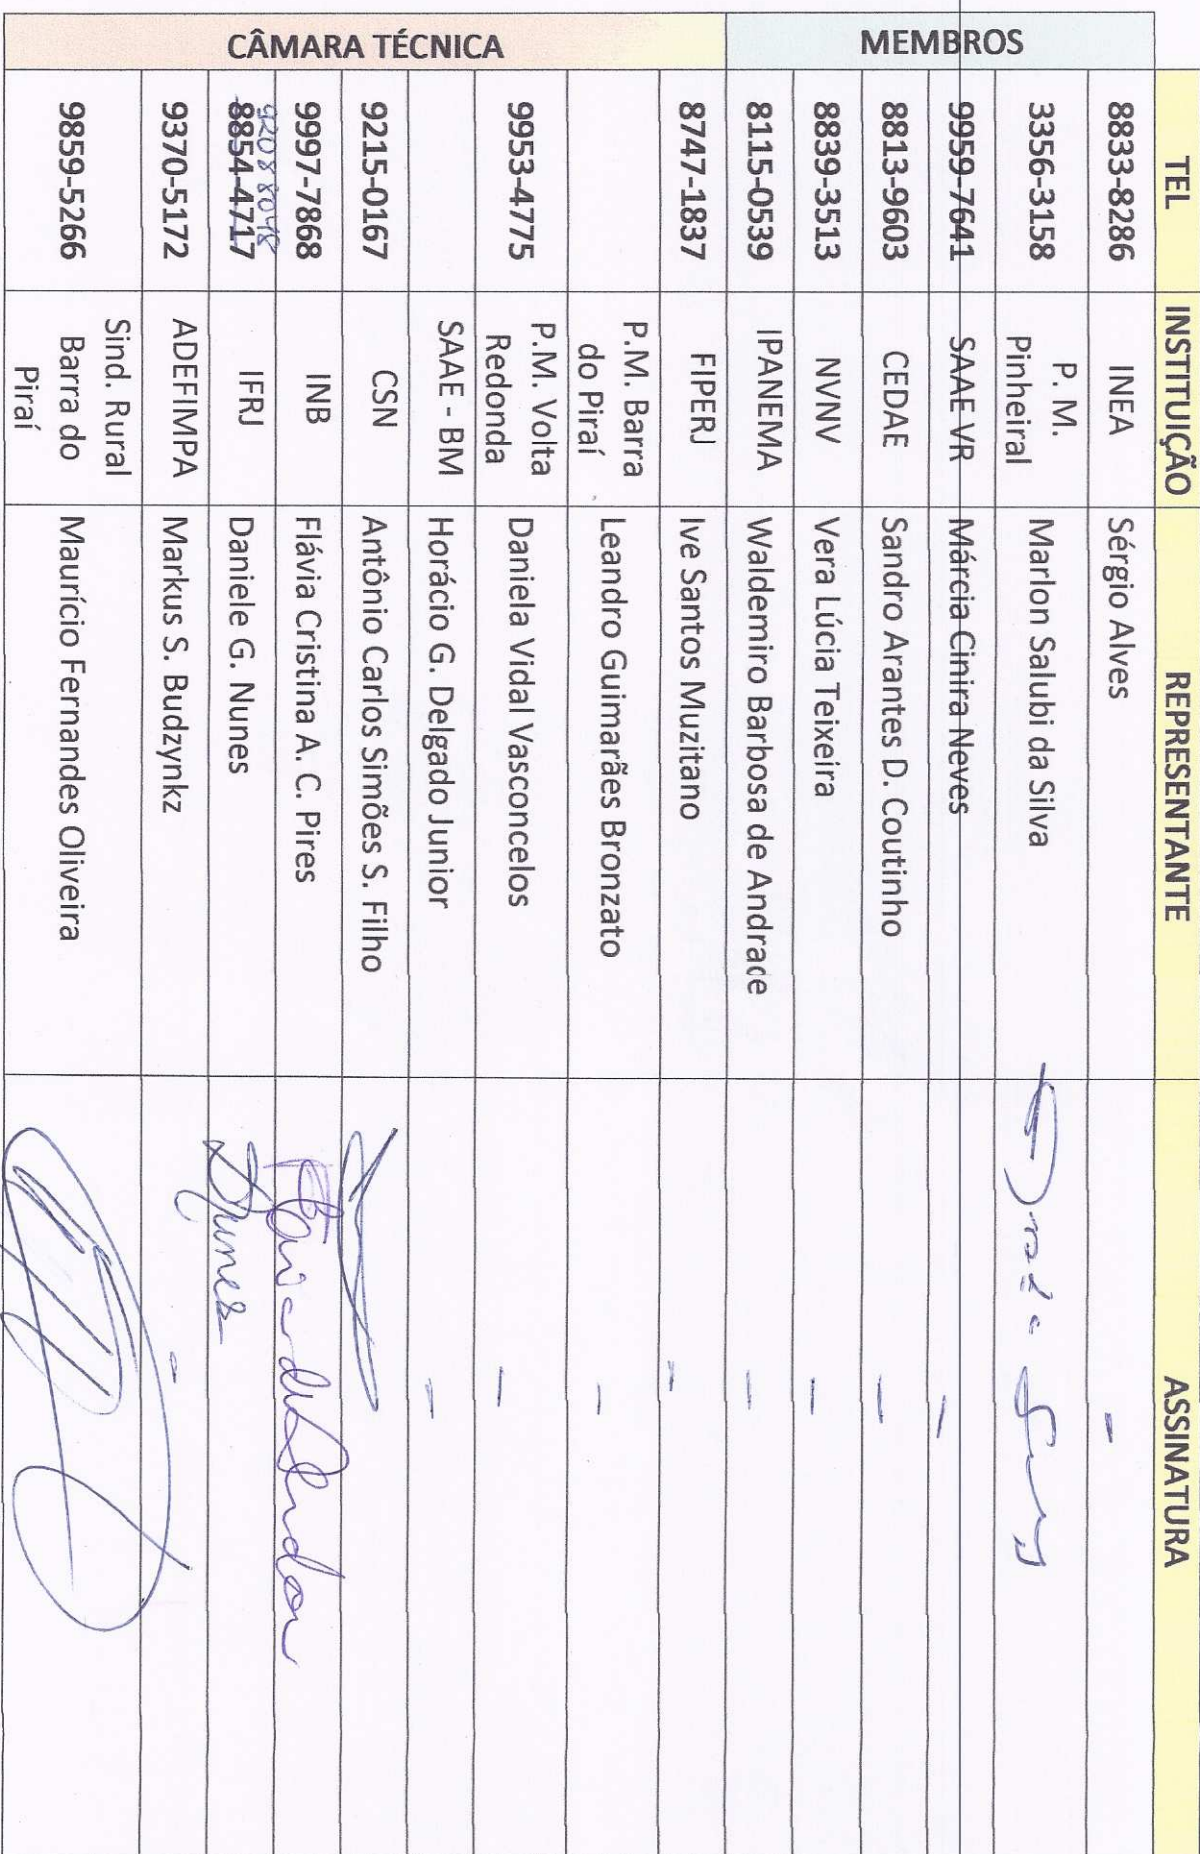 TEL INSTITUIÇÃO REPRESENTANTE ASSINATURA
MEMBROS
8833-8286 INEA Sérgio Alves -
3356-3158 P. M. Pinheiral Marlon Salubi da Silva
9959-7641 SAAE VR Márcia Cinira Neves -
8813-9603 CEDAE Sandro Arantes D. Coutinho -
8839-3513 NVNV Vera Lúcia Teixeira -
8115-0539 IPANEMA Waldemiro Barbosa de Andrade -
CÂMARA TÉCNICA
8747-1837 FIPERJ Ive Santos Muzitano -
P.M. Barra
do Piraí Leandro Guimarães Bronzato -
9953-4775 P.M. Volta
Redonda Daniela Vidal Vasconcelos -
SAAE - BM Horácio G. Delgado Junior -
9215-0167 CSN Antônio Carlos Simões S. Filho
9997-7868 INB Flávia Cristina A. C. Pires
92088048
8854-4717 IFRJ Daniele G. Nunes DNunes
9370-5172 ADEFIMPA Markus S. Budzynkz -
Sind. Rural
9859-5266 Barra do
Piraí Maurício Fernandes Oliveira